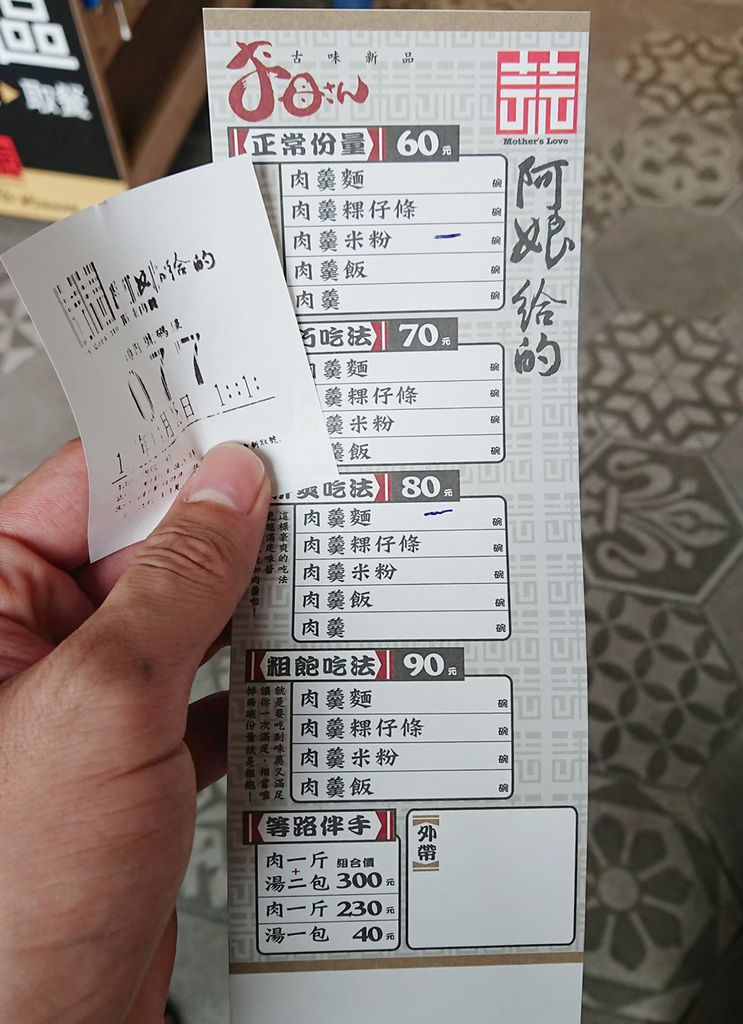 區
取餐
古味新品
お母さん
Mother's Love
阿娘給的
正常份量 60元
肉羹麵 碗
肉羹粿仔條 碗
肉羹米粉 碗
肉羹飯 碗
肉羹 碗
巧吃法 70元
肉羹麵 碗
肉羹粿仔條
肉羹米粉
羹飯 碗
爽吃法 80元
這樣豪爽的吃法
肉羹麵 碗
肉羹粿仔條 碗
肉羹米粉 碗
肉羹飯 碗
肉羹 碗
粗飽吃法 90元
就是要吃到味美又滿足
讓你一次滿足，相當嗆
掉兩碗份量就是粗飽！
肉羹麵 碗
肉羹粿仔條 碗
肉羹米粉 碗
肉羹飯 碗
等路伴手
肉一斤 組合價
+
湯二包 300元
肉一斤 230元
湯一包 40元
外帶
給的
077